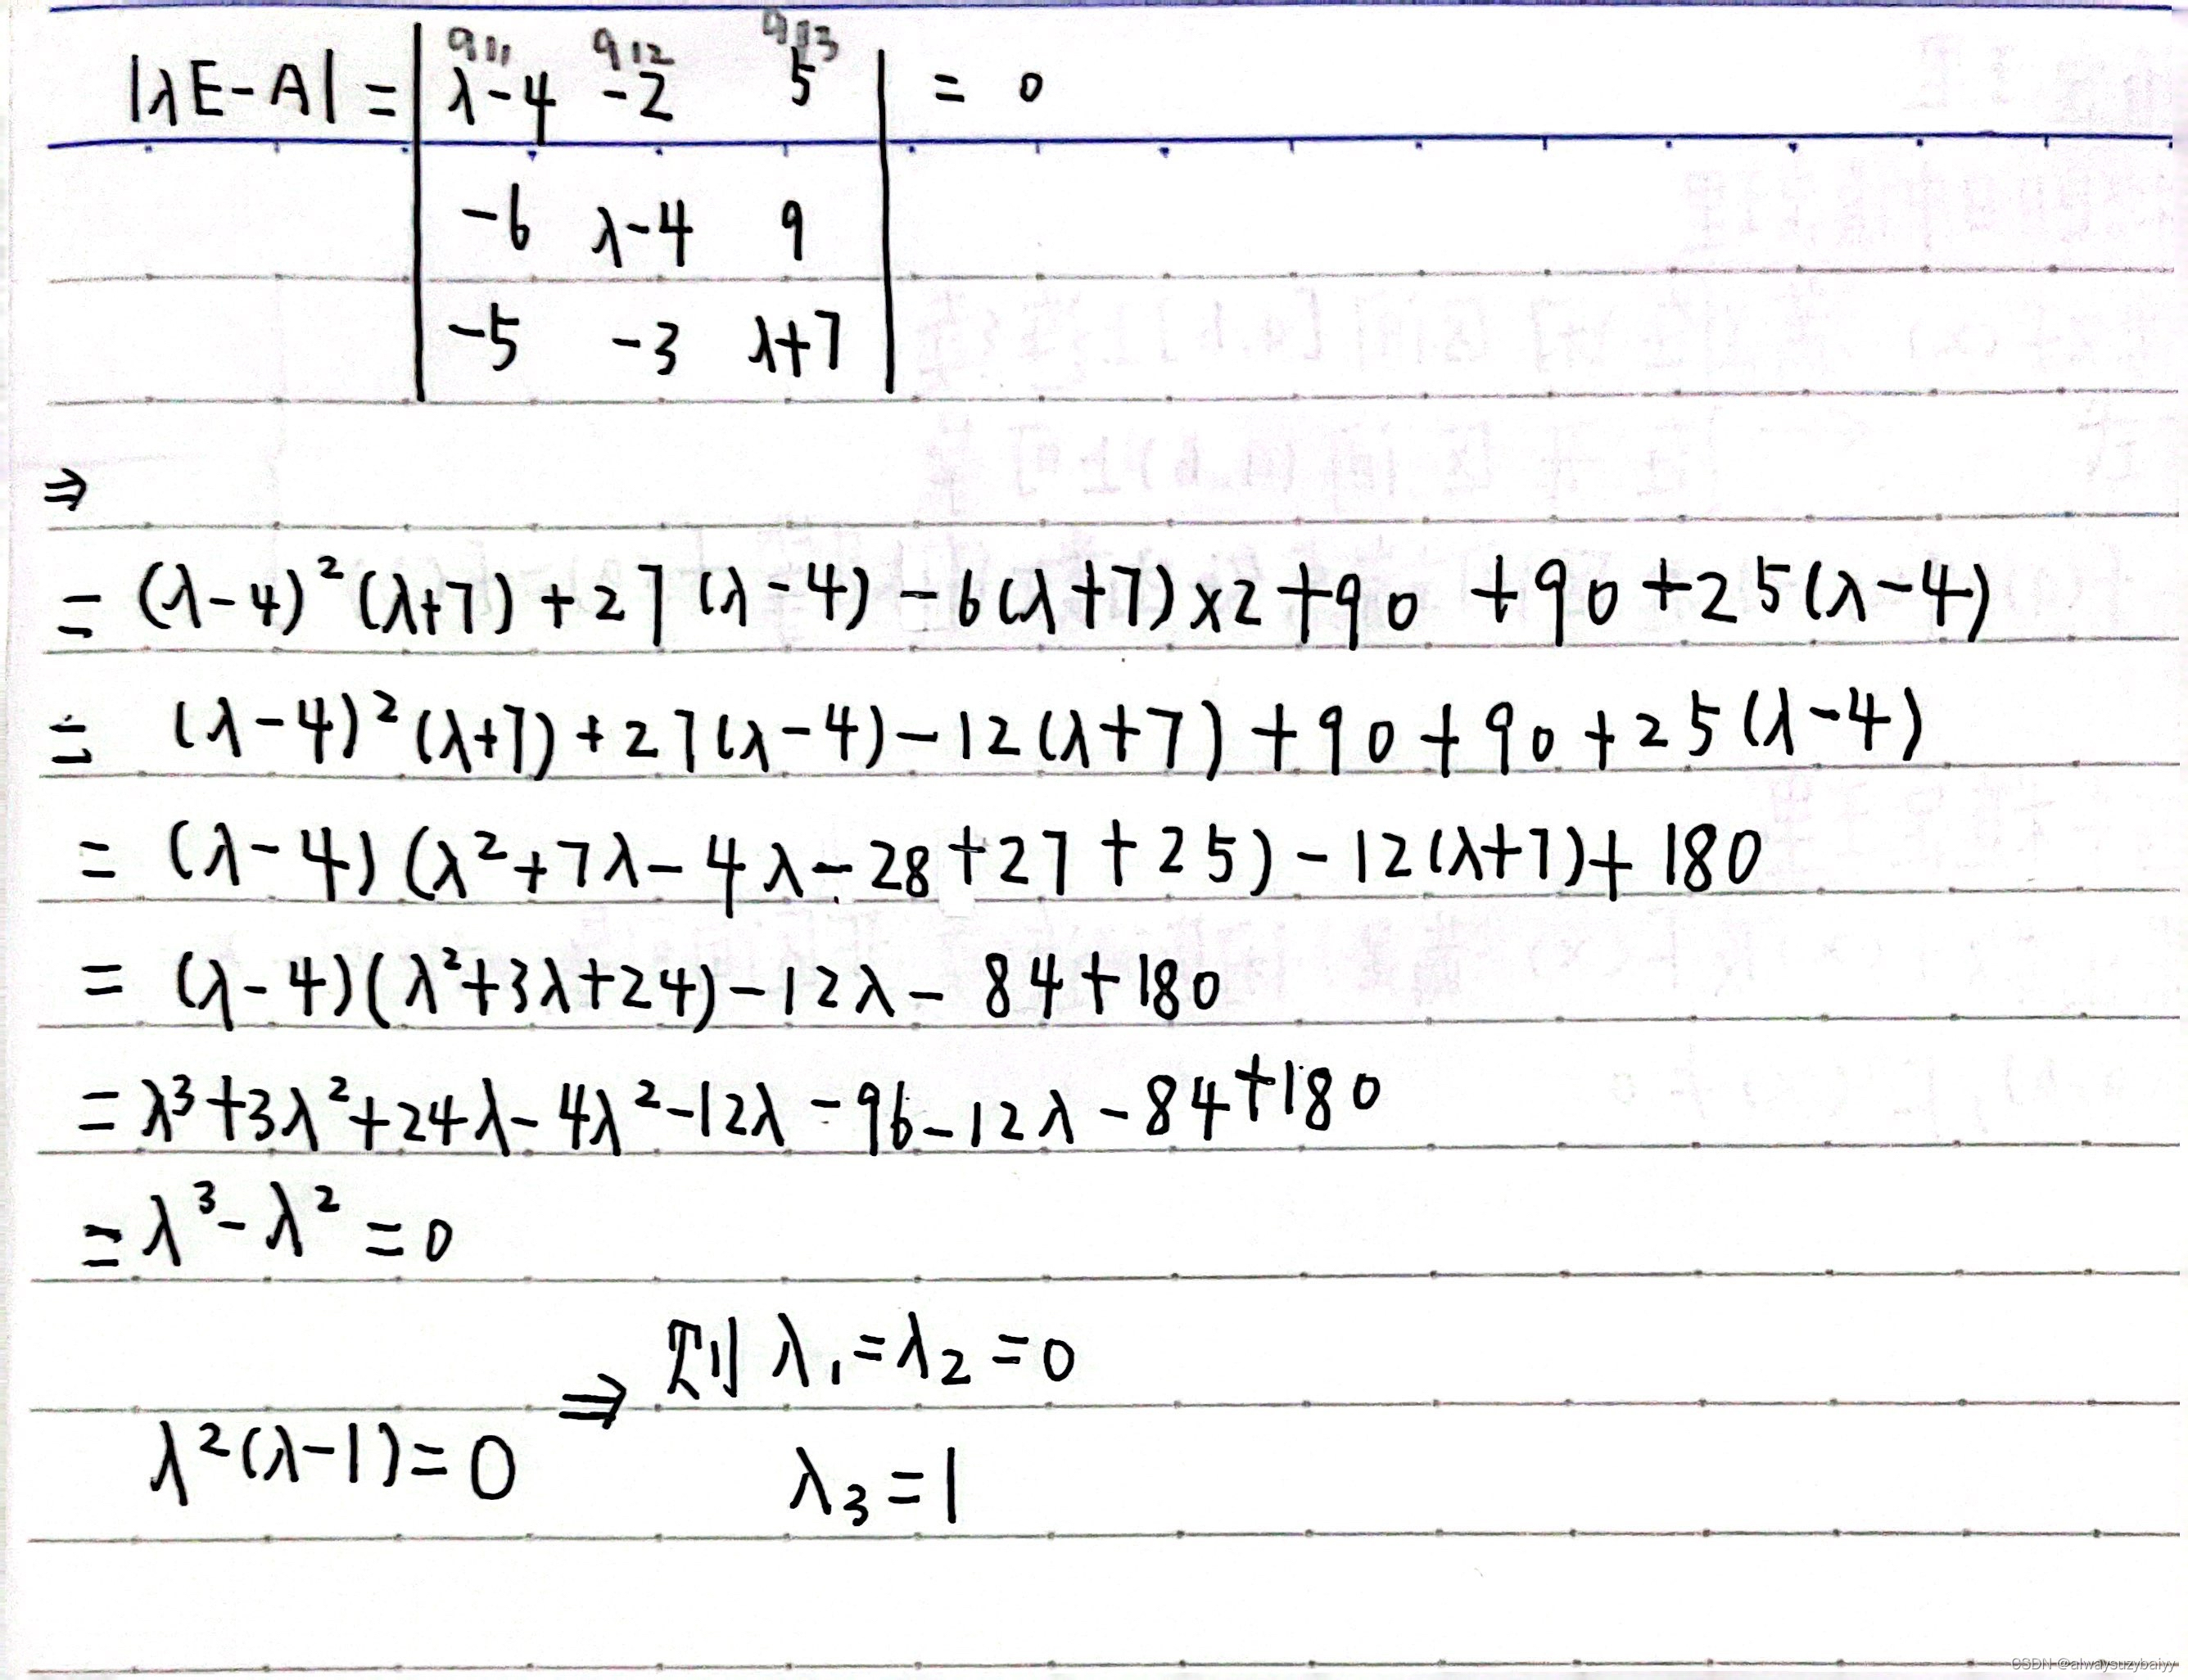 a11 a12 a13
|λE-A| = | λ-4 -2 5 | = 0
-6 λ-4 9
-5 -3 λ+7
⇒
= (λ-4)²(λ+7) + 27(λ-4) - 6(λ+7)×2 + 90 + 90 + 25(λ-4)
= (λ-4)²(λ+7) + 27(λ-4) - 12(λ+7) + 90 + 90 + 25(λ-4)
= (λ-4)(λ²+7λ-4λ-28+27+25) - 12(λ+7) + 180
= (λ-4)(λ²+3λ+24) - 12λ - 84 + 180
= λ³+3λ²+24λ-4λ²-12λ-96-12λ-84+180
= λ³-λ² = 0
λ²(λ-1)=0 ⇒ 则 λ₁=λ₂=0
λ₃=1
CSDN @alwaysuzybaiyy